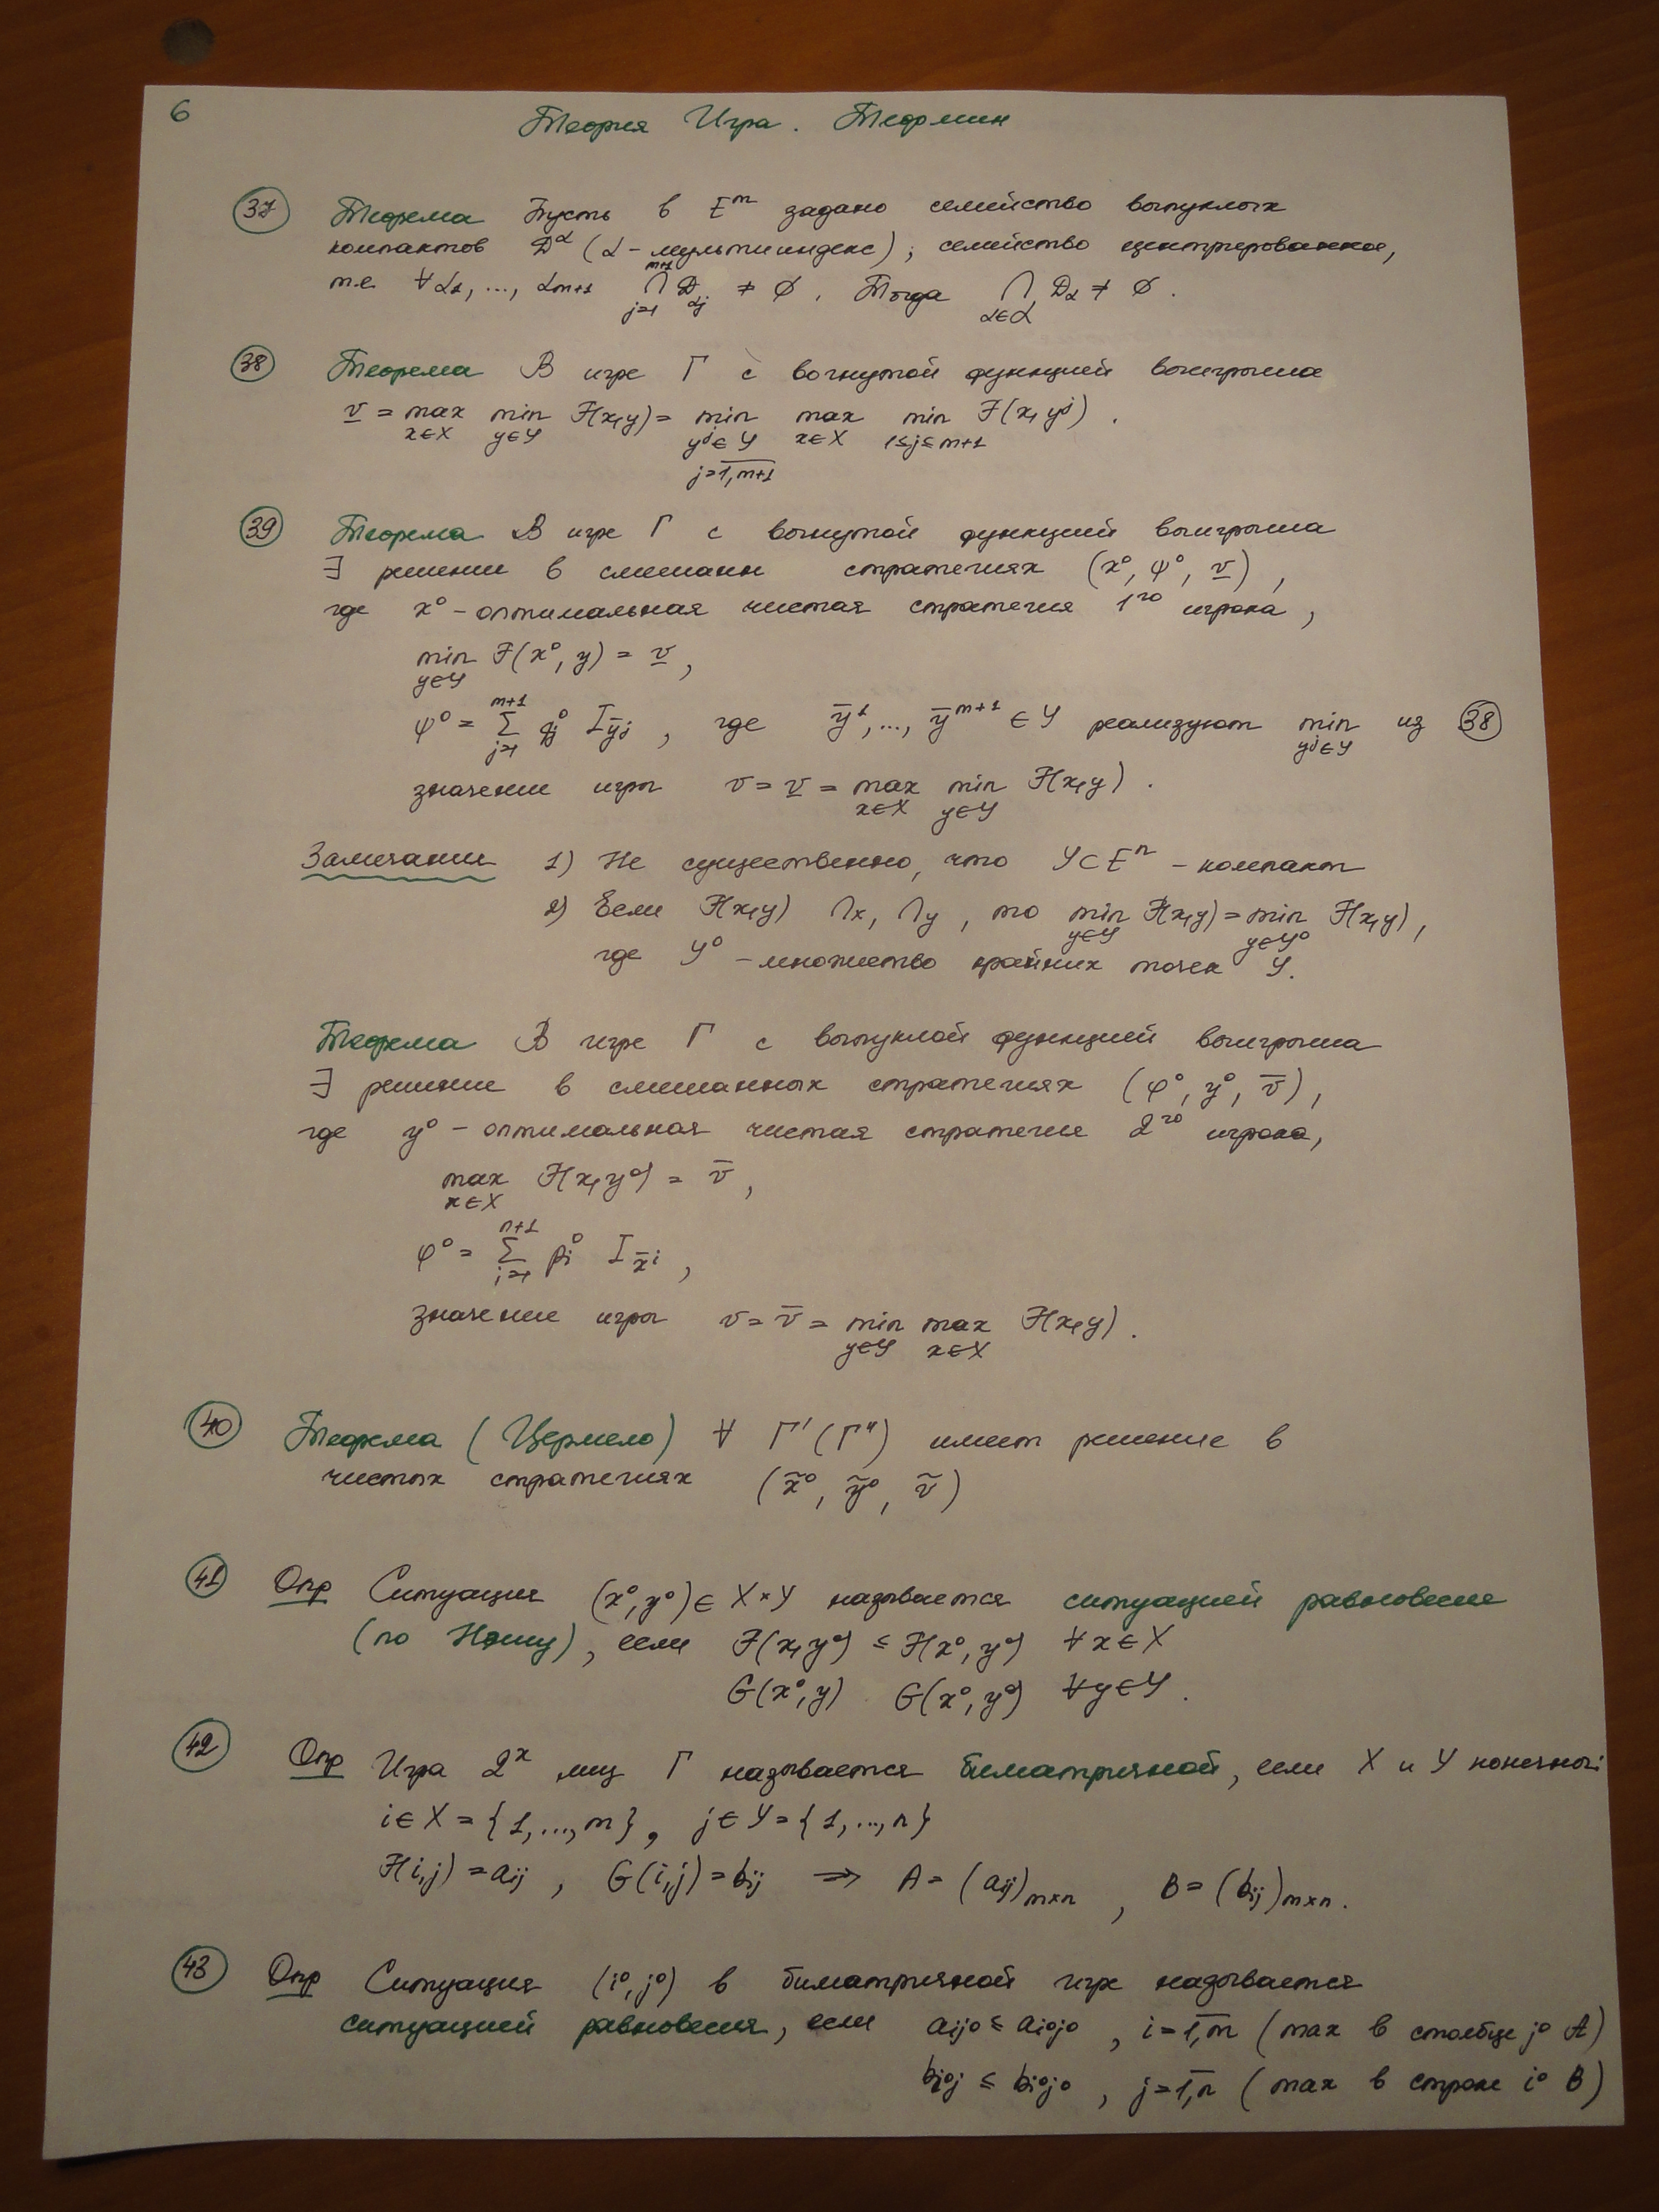 6
Теория Игра. Теормин
37 Теорема Пусть в E^m задано семейство выпуклых
компактов D^α (α - мультииндекс), семейство центрированное,
т.е. ∀α₁, ..., α_{m+1} ⋂_{j=1}^{m+1} D_{αj} ≠ ∅. Тогда ⋂_{α∈α} D_α ≠ ∅.
38 Теорема В игре Г с вогнутой функцией выигрыша
v̲ = max_{x∈X} min_{y∈Y} F(x,y) = min_{y^j∈Y, j=1,m+1} max_{x∈X} min_{1≤j≤m+1} F(x, y^j).
39 Теорема В игре Г с вогнутой функцией выигрыша
∃ решение в смешанн стратегиях (x⁰, ψ⁰, v̲),
где x⁰ - оптимальная чистая стратегия 1го игрока,
min_{y∈Y} F(x⁰, y) = v̲,
ψ⁰ = Σ_{j=1}^{m+1} q_j⁰ I_{ȳ^j}, где ȳ¹, ..., ȳ^{m+1} ∈ Y реализуют min_{y^j∈Y} из 38
значение игры v = v̲ = max_{x∈X} min_{y∈Y} F(x,y).
Замечания 1) Не существенно, что Y⊂E^n - компакт
2) Если F(x,y) ∩x, ∩y, то min_{y∈Y} F(x,y) = min_{y∈Y⁰} F(x,y),
где Y⁰ - множество крайних точек Y.
Теорема В игре Г с выпуклой функцией выигрыша
∃ решение в смешанных стратегиях (φ⁰, y⁰, v̅),
где y⁰ - оптимальная чистая стратегия 2го игрока,
max_{x∈X} F(x,y⁰) = v̅,
φ⁰ = Σ_{i=1}^{n+1} p_i⁰ I_{x̄^i},
значение игры v = v̅ = min_{y∈Y} max_{x∈X} F(x,y).
40 Теорема (Цермело) ∀ Г' (Г'') имеет решение в
чистых стратегиях (x̃⁰, ỹ⁰, ṽ)
41 Опр Ситуация (x⁰, y⁰) ∈ X×Y называется ситуацией равновесия
(по Нэшу), если F(x,y⁰) ≤ F(x⁰, y⁰) ∀x∈X
G(x⁰, y) G(x⁰, y⁰) ∀y∈Y.
42 Опр Игра 2х лиц Г называется биматричной, если X и Y конечны:
i∈X = {1, ..., m}, j∈Y = {1, ..., n}
F(i,j) = a_ij, G(i,j) = b_ij ⇒ A = (a_ij)_{m×n}, B = (b_ij)_{m×n}.
43 Опр Ситуация (i⁰, j⁰) в биматричной игре называется
ситуацией равновесия, если a_{ij⁰} ≤ a_{i⁰j⁰}, i=1,m (max в столбце j⁰ A)
b_{i⁰j} ≤ b_{i⁰j⁰}, j=1,n (max в строке i⁰ B)